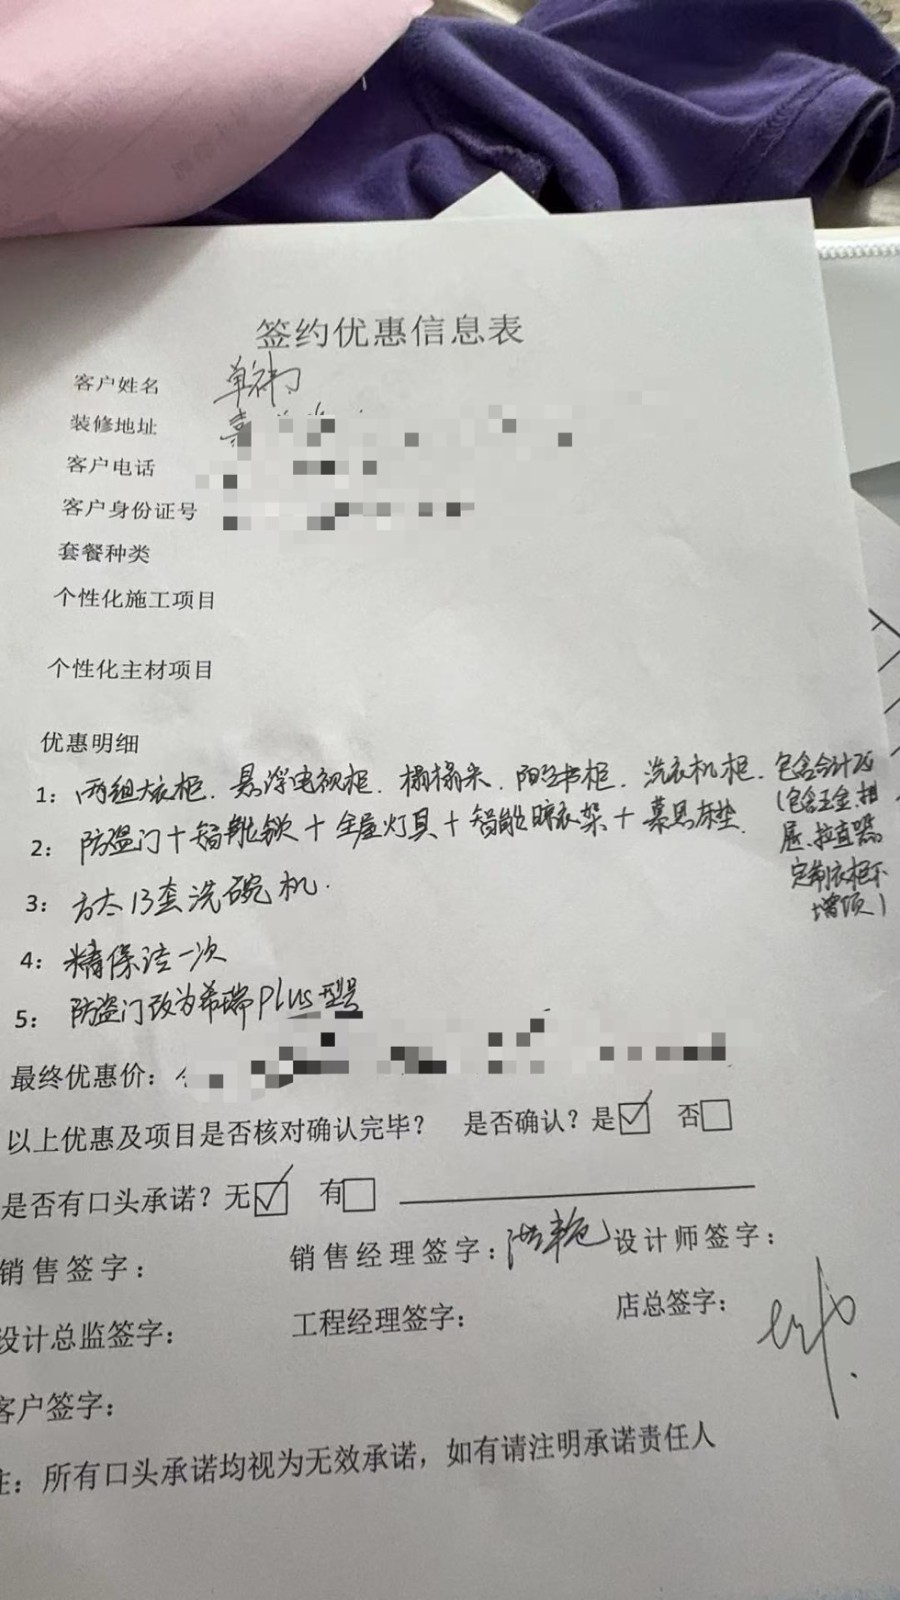 签约优惠信息表
客户姓名 单祎
装修地址
客户电话
客户身份证号
套餐种类
个性化施工项目
个性化主材项目
优惠明细
1: 两组大衣柜. 悬浮电视柜. 榻榻米. 阳台书柜. 洗衣机柜. 包含合计
2: 防盗门+智能锁+全屋灯具+智能晾衣架+慕思床垫.
(包含五金.抽
屉.拉直器.
定制衣柜不
增项)
3: 方太13套洗碗机.
4: 精保洁一次
5: 防盗门改为希瑞Plus型号
最终优惠价:
以上优惠及项目是否核对确认完毕? 是否确认? 是☑ 否□
是否有口头承诺? 无☑ 有□
销售签字: 销售经理签字: 设计师签字:
设计总监签字: 工程经理签字: 店总签字:
客户签字:
注: 所有口头承诺均视为无效承诺, 如有请注明承诺责任人